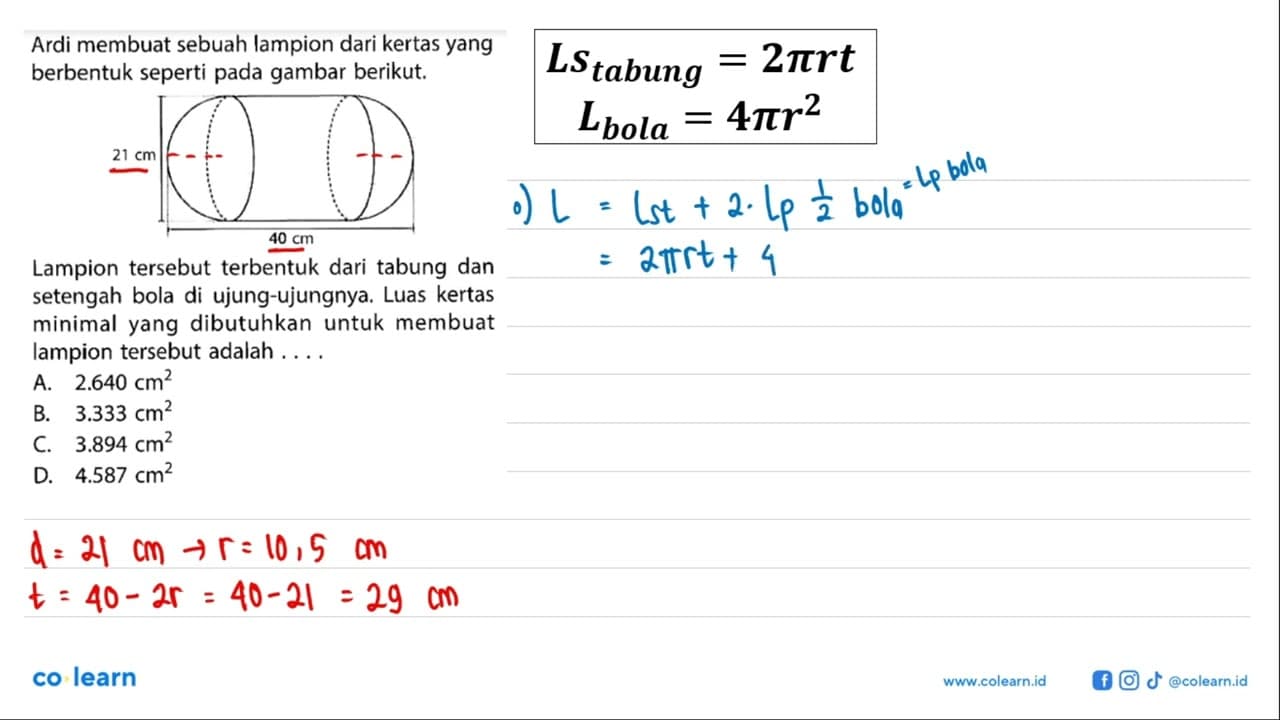 Ardi membuat sebuah lampion dari kertas yang
berbentuk seperti pada gambar berikut.
21 cm
40 cm
Lampion tersebut terbentuk dari tabung dan
setengah bola di ujung-ujungnya. Luas kertas
minimal yang dibutuhkan untuk membuat
lampion tersebut adalah . . . .
A. 2.640 cm²
B. 3.333 cm²
C. 3.894 cm²
D. 4.587 cm²
d = 21 cm → r = 10,5 cm
t = 40 - 2r = 40 - 21 = 29 cm
Ls tabung = 2πrt
L bola = 4πr²
o) L = Lst + 2. Lp 1/2 bola = Lp bola
= 2πrt + 4
co learn
www.colearn.id
@colearn.id